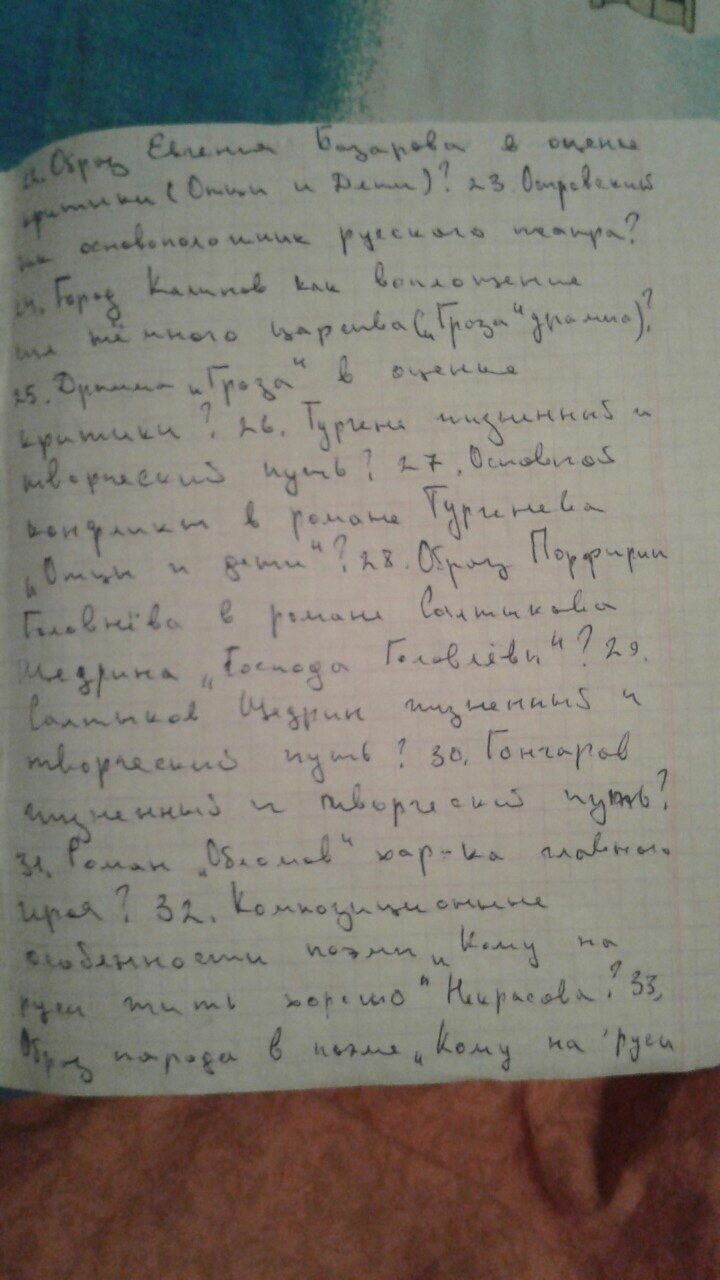 22. Образ Евгения Базарова в оценке
критики (Отцы и Дети)? 23. Островский
как основоположник русского театра?
24. Город Калинов как воплощение
тёмного царства („Гроза" драмма)?
25. Драмма „Гроза" в оценке
критики? 26. Тургене жизненный и
творческий путь? 27. Основной
конфликт в романе Тургенева
„Отцы и дети"? 28. Образ Порфирия
Головнёва в романе Салтыкова
Щедрина „Господа Головлёвы"? 29.
Салтыков Щедрин жизненный и
творческий путь? 30. Гончаров
жизненный и творческий путь?
31. Роман „Обломов" хар-ка главного
героя? 32. Композиционные
особенности поэмы „Кому на
руси жить хорошо" Некрасова? 33.
Образ народа в поэме „Кому на руси